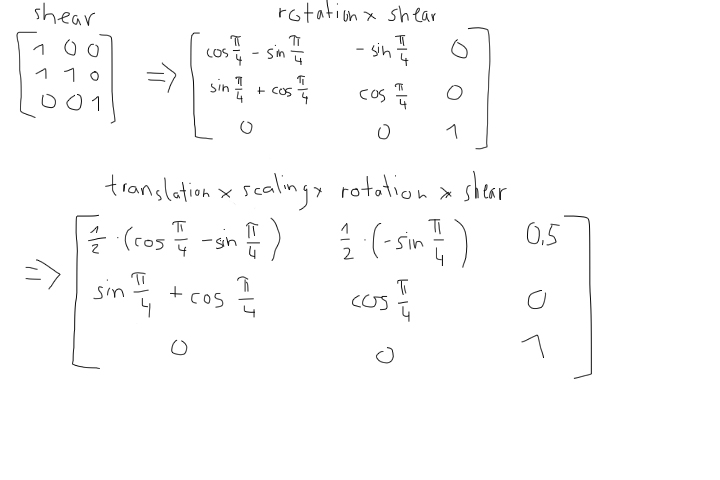 shear
[1 0 0
1 1 0
0 0 1]
=>
rotation x shear
[cos π/4 - sin π/4   - sin π/4   0
sin π/4 + cos π/4   cos π/4   0
0   0   1]
translation x scaling x rotation x shear
=>
[1/2 · (cos π/4 - sin π/4)   1/2 · (- sin π/4)   0,5
sin π/4 + cos π/4   cos π/4   0
0   0   1]